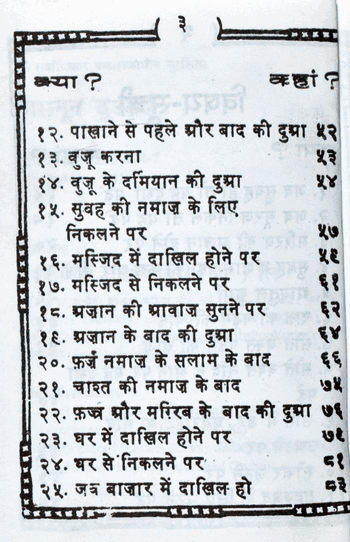 ( ३ )
क्या ? कहां ?
१२. पाखाने से पहले और बाद की दुआ ५२
१३. वुजू करना ५३
१४. वुजू के दर्मियान की दुआ ५४
१५. सुबह की नमाज़ के लिए
निकलने पर ५७
१६. मस्जिद में दाखिल होने पर ५९
१७. मस्जिद से निकलने पर ६१
१८. अज़ान की आवाज़ सुनने पर ६२
१९. अज़ान के बाद की दुआ ६४
२०. फ़र्ज़ नमाज़ के सलाम के बाद ६६
२१. चाश्त की नमाज़ के बाद ७५
२२. फ़ज्र और मग़्रिब के बाद की दुआ ७६
२३. घर में दाखिल होने पर ७९
२४. घर से निकलने पर ८१
२५. जब बाज़ार में दाखिल हो ८३